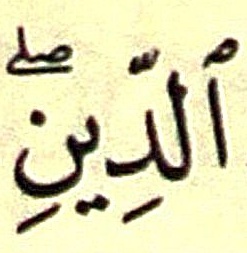 ٱلدِّينِۖ